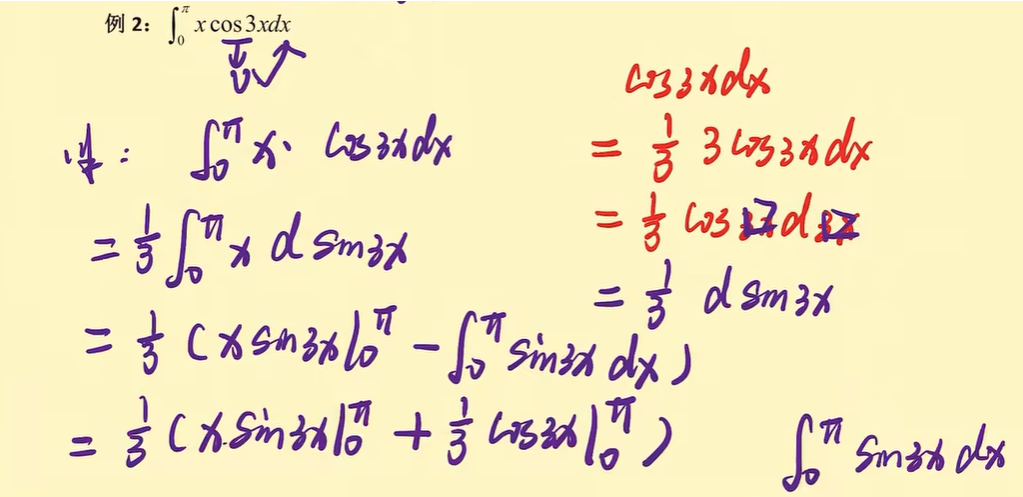 例 2: ∫₀^π x cos 3xdx
U V
解: ∫₀^π x· cos3xdx
= 1/3 ∫₀^π x d sin3x
= 1/3 (x sin3x|₀^π - ∫₀^π sin3x dx)
= 1/3 (x.sin3x|₀^π + 1/3 cos3x|₀^π)
cos3xdx
= 1/3 3cos3xdx
= 1/3 cos d
= 1/3 d sin3x
∫₀^π sin3x dx